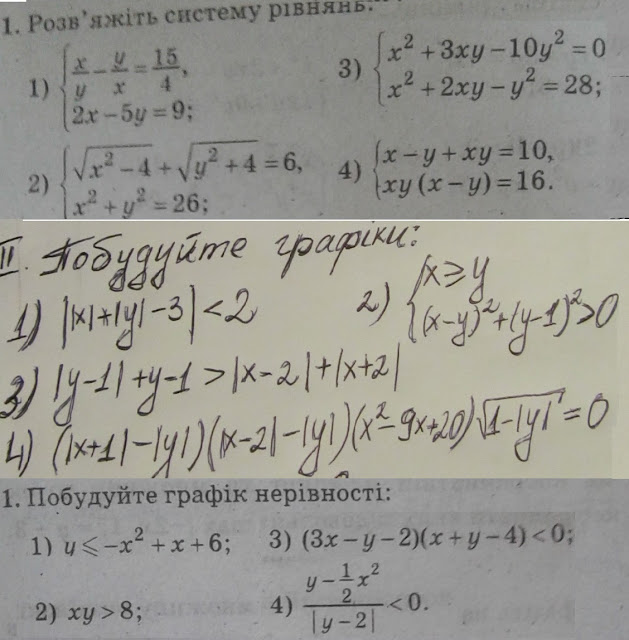 1. Розв'яжіть систему рівнянь:
1) { x/y − y/x = 15/4,
2x − 5y = 9;
2) { √(x² − 4) + √(y² + 4) = 6,
x² + y² = 26;
3) { x² + 3xy − 10y² = 0
x² + 2xy − y² = 28;
4) { x − y + xy = 10,
xy(x − y) = 16.
II. Побудуйте графіки:
1) ||x|+|y|−3| < 2
2) { x ≥ y
(x−y)² + (y−1)² > 0
3) |y−1| + y−1 > |x−2| + |x+2|
4) (|x+1|−|y|)(|x−2|−|y|)(x²−9x+20)√(1−|y|) = 0
1. Побудуйте графік нерівності:
1) y ⩽ −x² + x + 6;
2) xy > 8;
3) (3x − y − 2)(x + y − 4) < 0;
4) (y − 1/2 x²)/|y − 2| < 0.